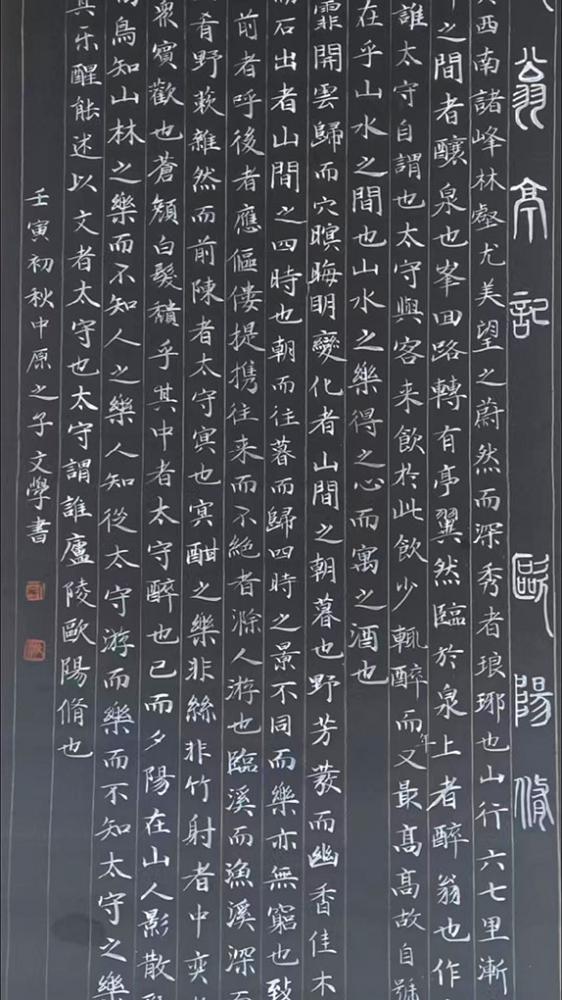 翁亭記 歐陽脩
西南諸峰林壑尤美望之蔚然而深秀者琅琊也山行六七里漸
之間者釀泉也峯回路轉有亭翼然臨於泉上者醉翁也作
誰太守自謂也太守與客来飲於此飲少輒醉而年又最高高故自號
在乎山水之間也山水之樂得之心而寓之酒也
霏開雲歸而穴暝晦明變化者山間之朝暮也野芳發而幽香佳木
而石出者山間之四時也朝而往暮而歸四時之景不同而樂亦無窮也致
前者呼後者應傴僂提携往来而不絕者滁人游也臨溪而漁溪深而
肴野蔌雜然而前陳者太守宴也宴酣之樂非絲非竹射者中奕
衆賓歡也蒼顏白髮頹乎其中者太守醉也已而夕陽在山人影散
而鳥知山林之樂而不知人之樂人知從太守游而樂而不知太守之樂
其乐醒能述以文者太守也太守謂誰廬陵歐陽脩也
壬寅初秋中原之子文學書